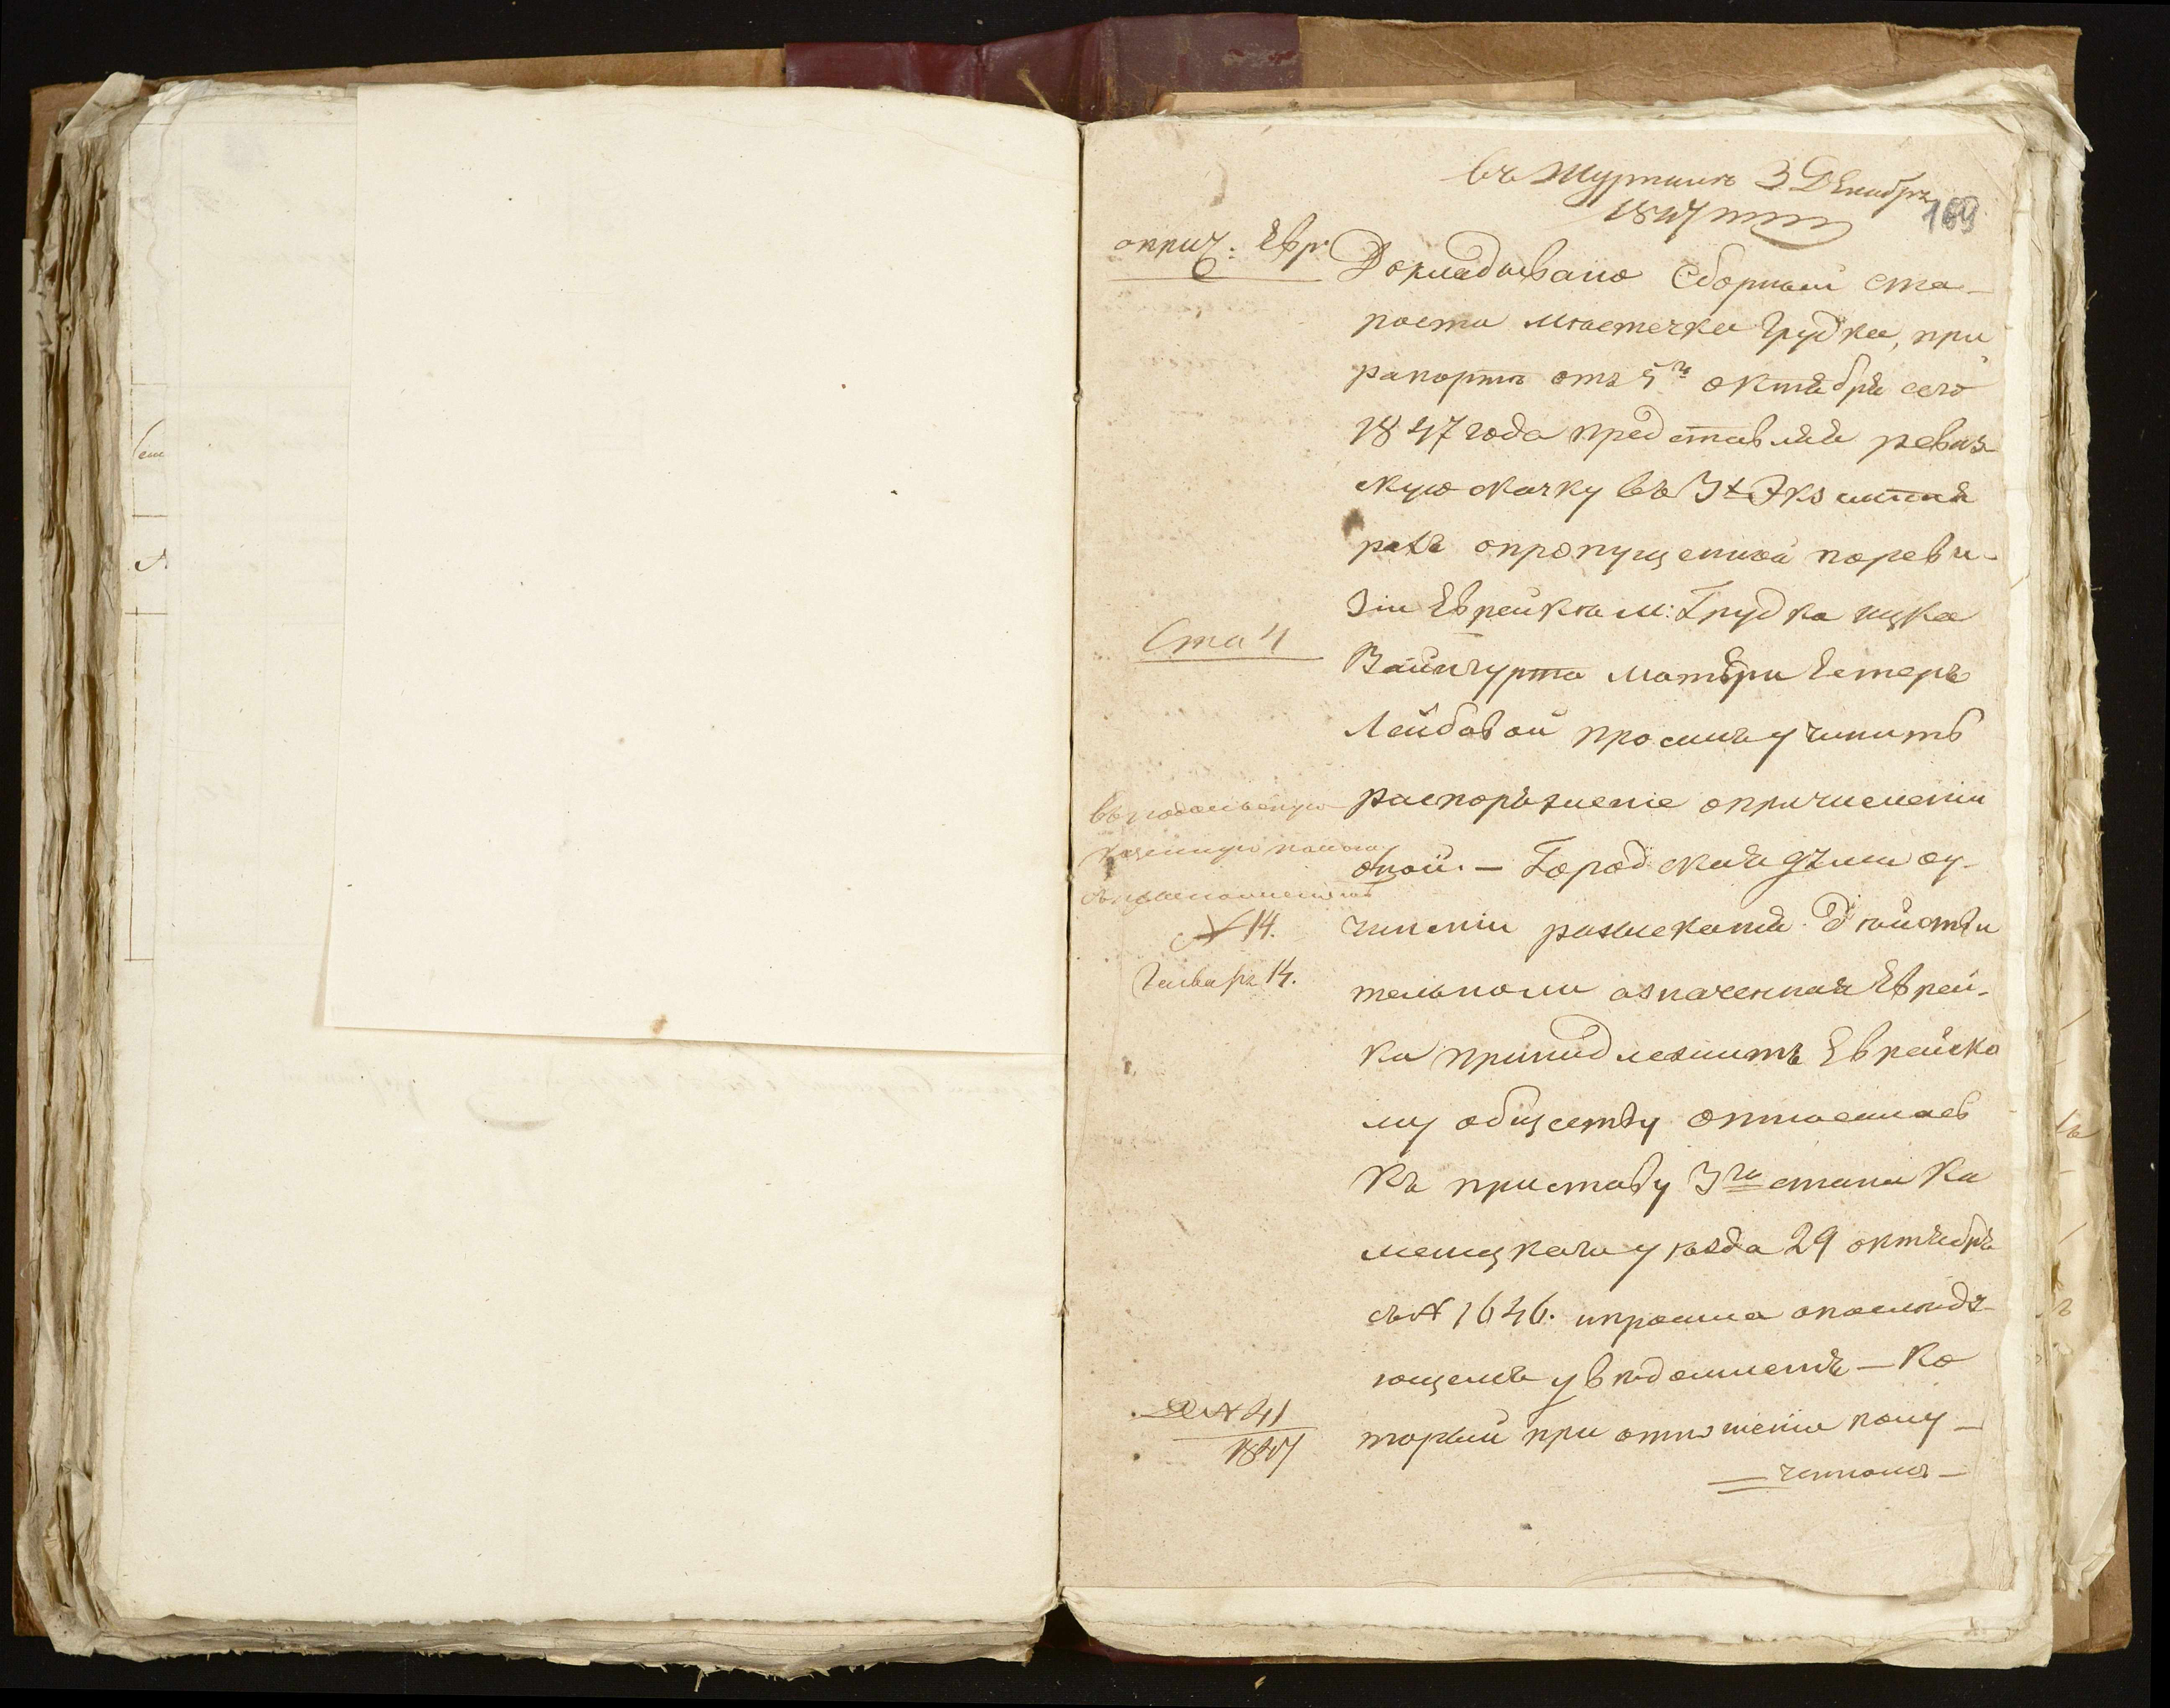 въ Журналъ 3 Декабря
1847
169
о прич: Евр:
Докладывано Сборный ста-
роста местечка Грудка, при
рапортѣ отъ 5го октября сего
1847 года представляя ревиз
скую скачку въ 3х Экземпля
рахъ о пропущенной по реви-
зіи Еврейки м: Грудка Ицка
Вайнгурта матери Естеръ
Лейбовой просилъ учинить
распоряженіе о причисленіи
оной. — Городская дума оу-
чиненіи разысканія Действи
тельно ли означенная Еврей-
ка принадлежитъ Еврейско
му обществу относилась
къ приставу 3го стана Ка
менецкаго уезда 29 октября
съ № 1646. и просила о послѣд-
ющемъ уведомленія — Ко
торый при отношеніи полу-
— ченномъ —
Ста 4
въ подольскую
казенную палату
№ 14.
Генваря 14.
№ 41
1847